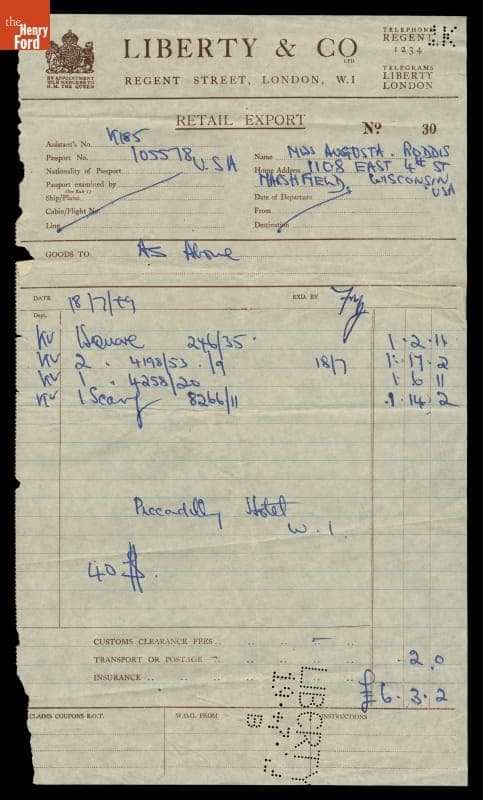 the
Henry
Ford
BY APPOINTMENT
SILK MERCERS TO
H.M. THE QUEEN
LIBERTY & CO LTD
REGENT STREET, LONDON, W.1
TELEPHONE
REGENT
1234
TELEGRAMS
LIBERTY
LONDON
RETAIL EXPORT
No 30
Assistant's No. K185
Passport No. 105578
Nationality of Passport USA
Passport examined by
(See Rule 1)
Ship/Plane
Cabin/Flight No.
Line
Name MISS AUGUSTA. RODDIS
Home Address 1108 EAST 4th ST
MARSHFIELD, WISCONSIN, USA
Date of Departure
From
Destination
GOODS TO As Above
DATE 18/7/49 EXD. BY
Dept.
KV Square 246/35 1.2.11
KV 2 . 4198/53 . /9 18/7 1.17.2
KV 1 . 4258/20 1 6 11
KV 1 Scarf 8266/11 1.14.2
Piccadilly Hotel
W.1.
40 $.
CUSTOMS CLEARANCE FEES
TRANSPORT OR POSTAGE 2.0
INSURANCE
£6.3.2
CLAIMS COUPONS R.O.T. W.O.G. FROM INSTRUCTIONS
LIBERTY